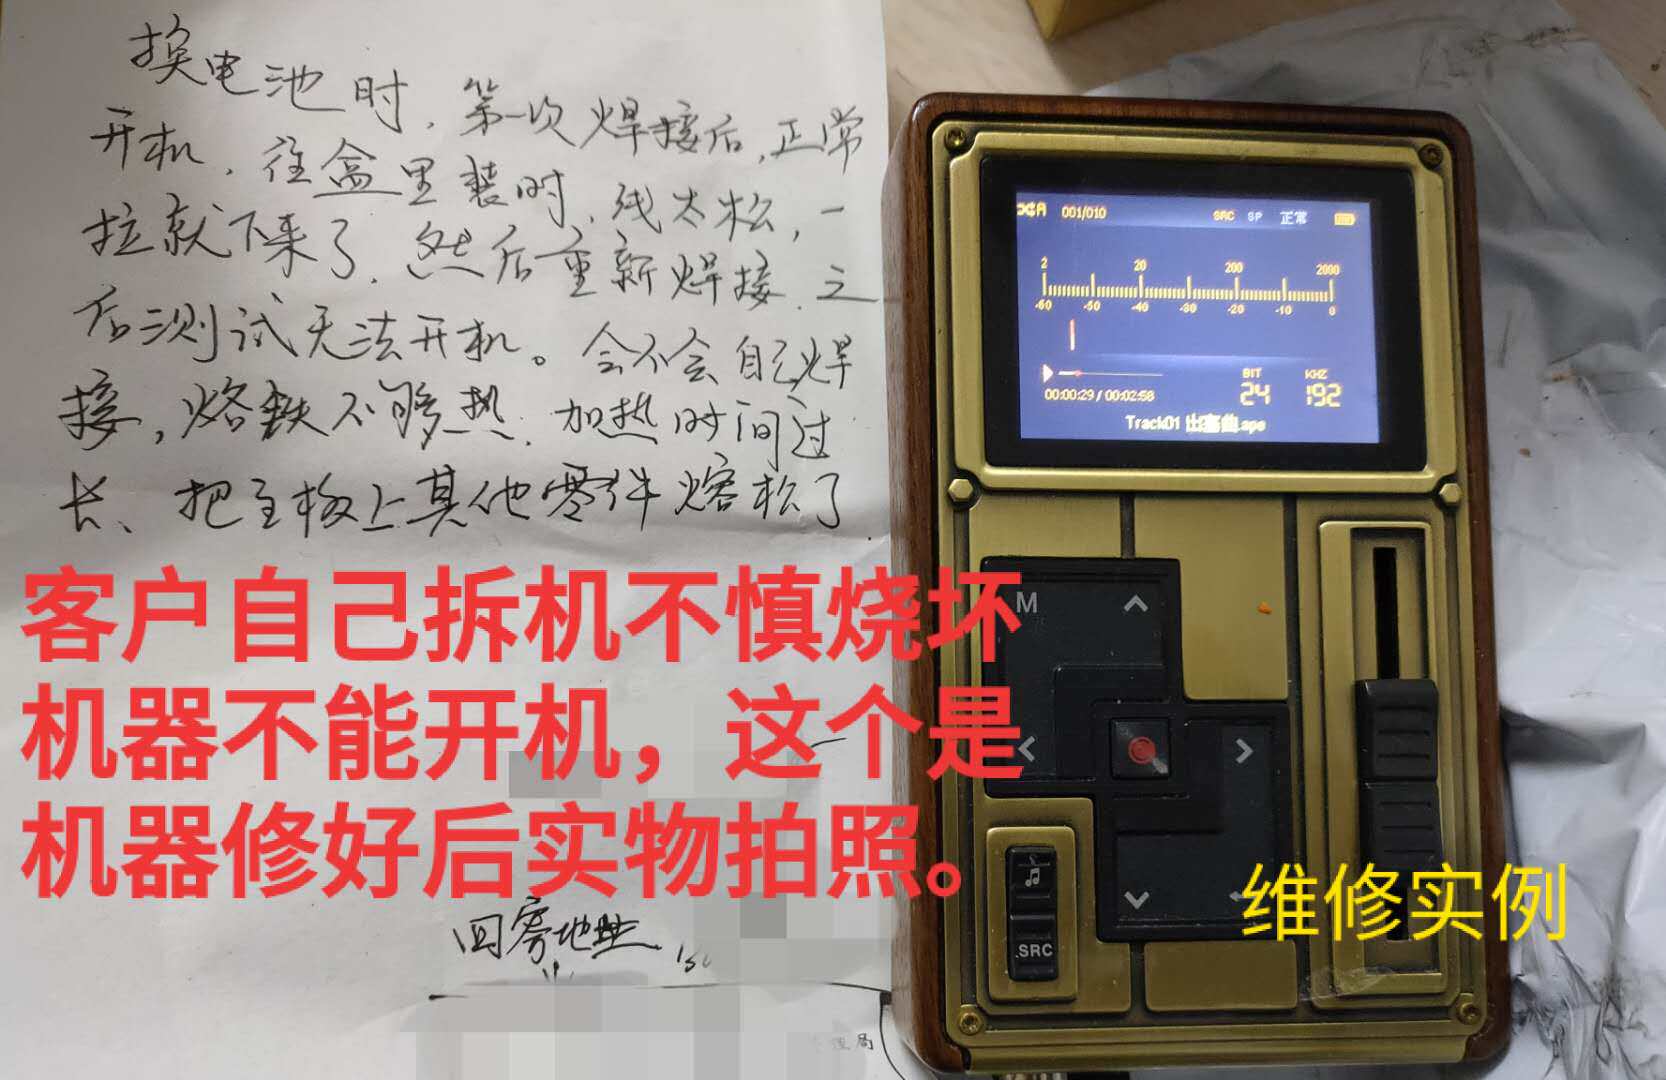 换电池时,第一次焊接后,正常
开机,往盒里装时,线太松,一
拉就下来了.然后重新焊接.之
后测试无法开机。会不会自己焊
接,烙铁不够热.加热时间过
长、把主板上其他零件熔松了
客户自己拆机不慎烧坏
机器不能开机，这个是
机器修好后实物拍照。
回寄地址
A 001/010 SRC SP 正常
2 20 200 2000
-60 -50 -40 -30 -20 -10 0
BIT KHZ
00:00:29 / 00:02:58 24 192
Track01 出塞曲.ape
M
SRC
维修实例